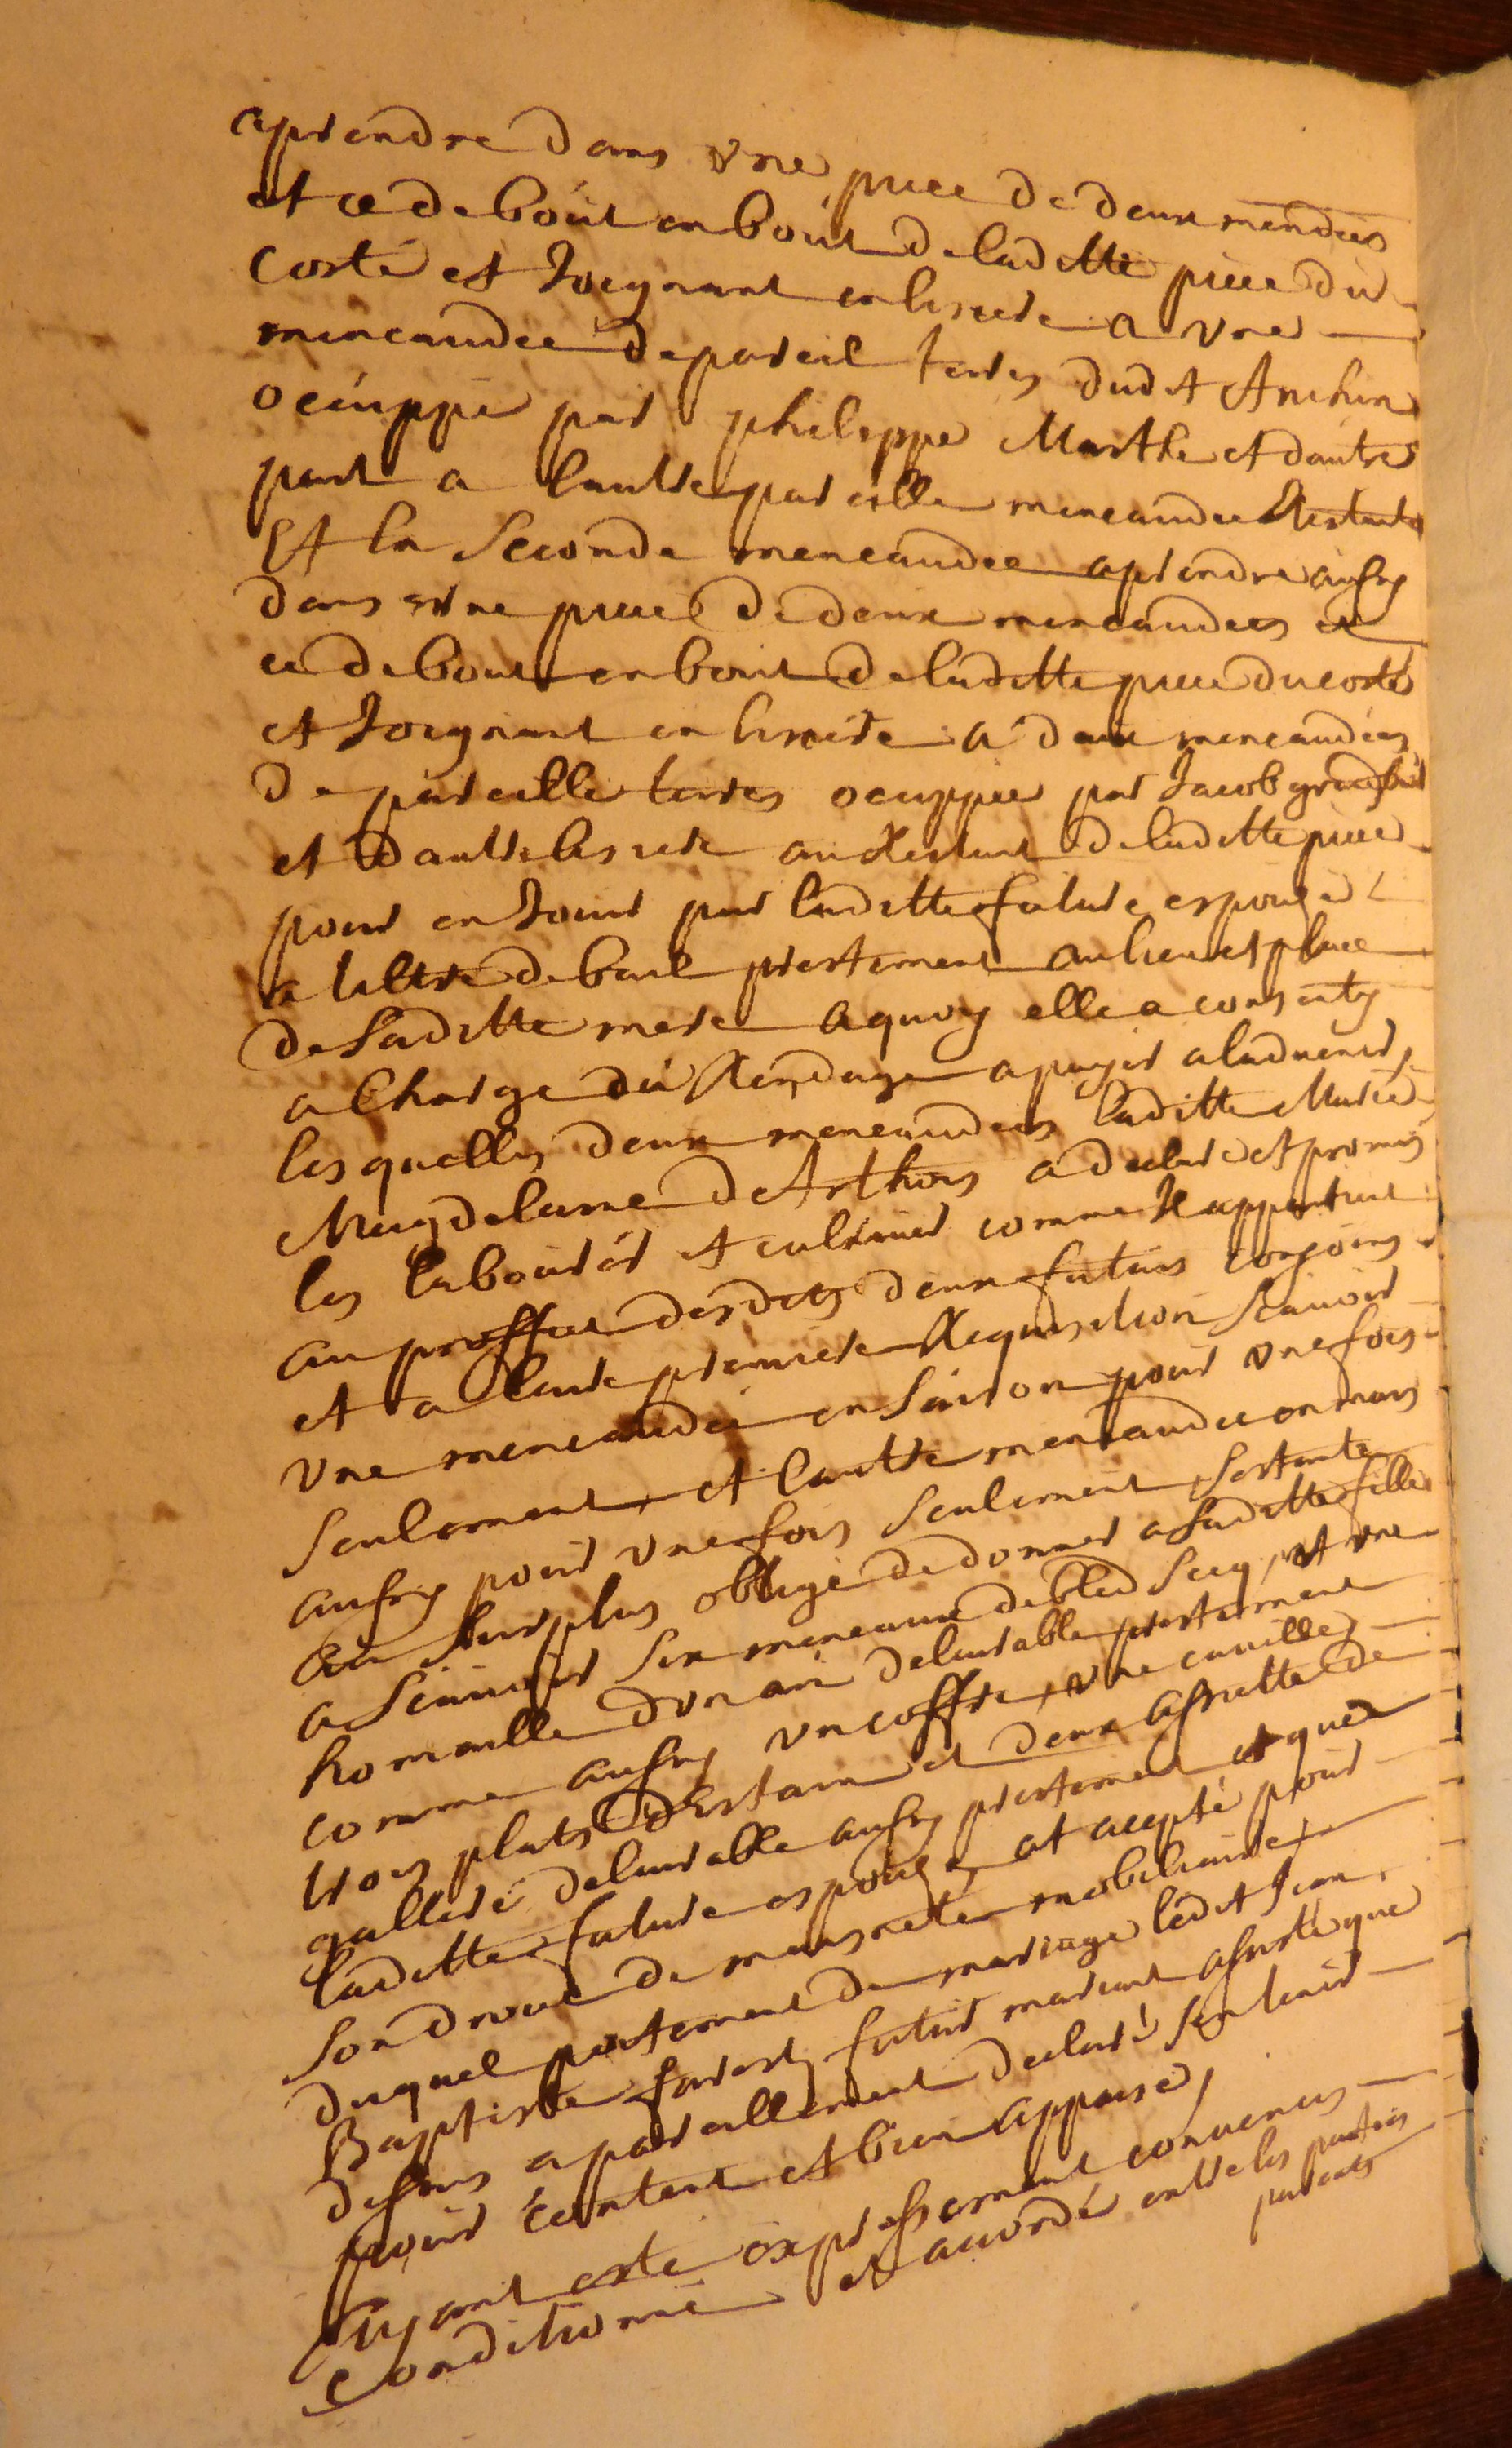 aprendre dans une piece de deux mendées
et ce de bout en bout de laditte piece du
costé et Joignant en lisiere a une
mencaudee de pareil terres dudt Anchin
ocuppé par philippe Marthe et dautre
part a lautre pareille mencaudee Restante
Et la Seconde mencaudee aprendre aussy
dans une piece de deux mencaudees et
ce de bout en bout de laditte piece du costé
et Joignant en lisiere a deux mencaudées
de pareille terres ocuppee par Jacob
et dautre lisiere au Restant de laditte piece
pour en Jouir par laditte future espouse
a tiltre de bail prestement au lieu et place
de Saditte mere aquoy elle a consenty
a Charge du Rendage a payer aladvenir,
lesquelles deux mencaudees laditte Marie
Magdelaine DArthois a declaré et promis
les labourér et cultiver comme Il appartient
au proffit desdits deux futurs conjoins
et a leur premiere Requisition Scavoir
une mencaudée en Saison pour une fois
Seulement, et lautre mencaudee en mars
aussy pour une fois Seulement, Sestante
au Surplus obligé de donner a Saditte fille
a Scauoir Six mencaux de bled Secq, et une
homaille dun an deliurable prestement
comme aussy un coffre, une cauille,
trois plats dEstain et deux assiette de
gallere deliurable aussy prestement et que
laditte future espouse at accepté pour
Son droit de maisneté mobiliaire,
duquel portement de mariage ledit Jean
Baptiste farez futur mariant assisté que
dessus a pareillement declaré Sen tenir
pour content et bien appaisé,
Ayant esté expressement conuenus
Conditionné et accordés entre les parties
parents